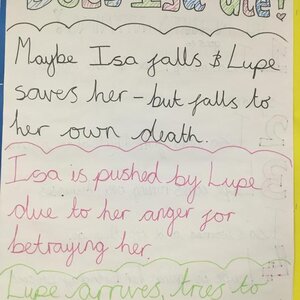 Does Isa die!
Maybe Isa falls & Lupe
saves her - but falls to
her own death.
Isa is pushed by Lupe
due to her anger for
betraying her.
Lupe arrives, tries to